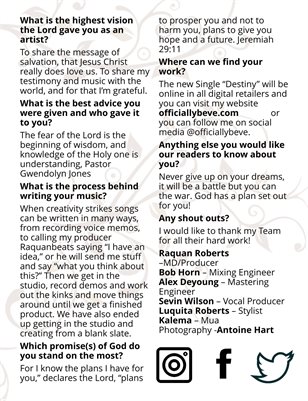 What is the highest vision
the Lord gave you as an
artist?
To share the message of
salvation, that Jesus Christ
really does love us. To share my
testimony and music with the
world, and for that I'm grateful.
What is the best advice you
were given and who gave it
to you?
The fear of the Lord is the
beginning of wisdom, and
knowledge of the Holy one is
understanding, Pastor
Gwendolyn Jones
What is the process behind
writing your music?
When creativity strikes songs
can be written in many ways,
from recording voice memos,
to calling my producer
Raquanbeats saying "I have an
idea," or he will send me stuff
and say "what you think about
this?" Then we get in the
studio, record demos and work
out the kinks and move things
around until we get a finished
product. We have also ended
up getting in the studio and
creating from a blank slate.
Which promise(s) of God do
you stand on the most?
For I know the plans I have for
you," declares the Lord, "plans
to prosper you and not to
harm you, plans to give you
hope and a future. Jeremiah
29:11
Where can we find your
work?
The new Single "Destiny' will be
online in all digital retailers and
you can visit my website
officiallybeve.com or
you can follow me on social
media @officiallybeve.
Anything else you would like
our readers to know about
you?
Never give up on your dreams,
it will be a battle but you can
the war. God has a plan set out
for you!
Any shout outs?
I would like to thank my Team
for all their hard work!
Raquan Roberts
–MD/Producer
Bob Horn – Mixing Engineer
Alex Deyoung – Mastering
Engineer
Sevin Wilson – Vocal Producer
Luquita Roberts – Stylist
Kalema – Mua
Photography -Antoine Hart